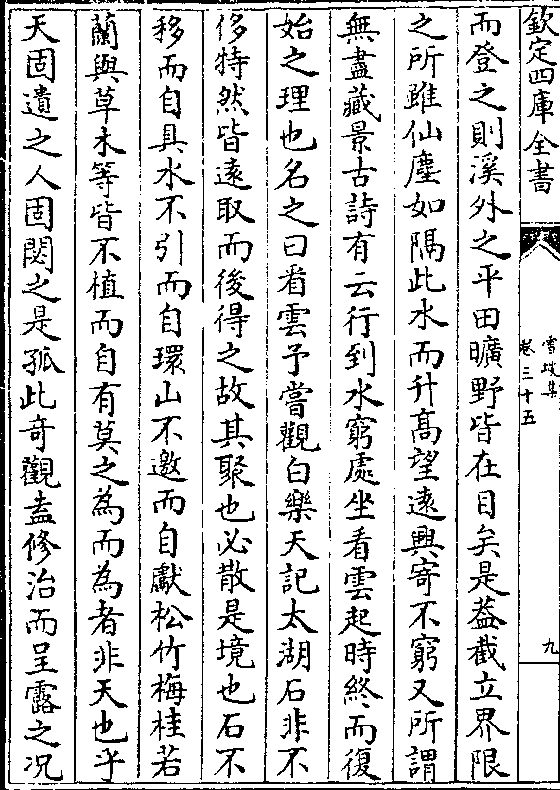 欽定四庫全書
雪坡集
卷三十五
九
而登之則溪外之平田曠野皆在目矣是葢截立界限
之所雖仙塵如隔此水而升髙望遠興寄不窮又所謂
無盡藏景古詩有云行到水窮處坐看雲起時終而復
始之理也名之曰看雲予嘗觀白樂天記太湖石非不
侈特然皆逺取而後得之故其聚也必散是境也石不
移而自具水不引而自環山不邀而自獻松竹梅桂若
蘭與草木等皆不植而自有莫之為而為者非天也乎
天固遺之人固閟之是孤此奇觀盍修治而呈露之况